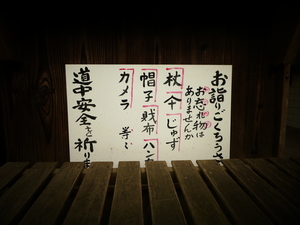 お詣りごくろうさ
お忘れ物は
ありませんか
杖 傘 じゅず
帽子 財布 ハン
カメラ 等々
道中安全を祈りま